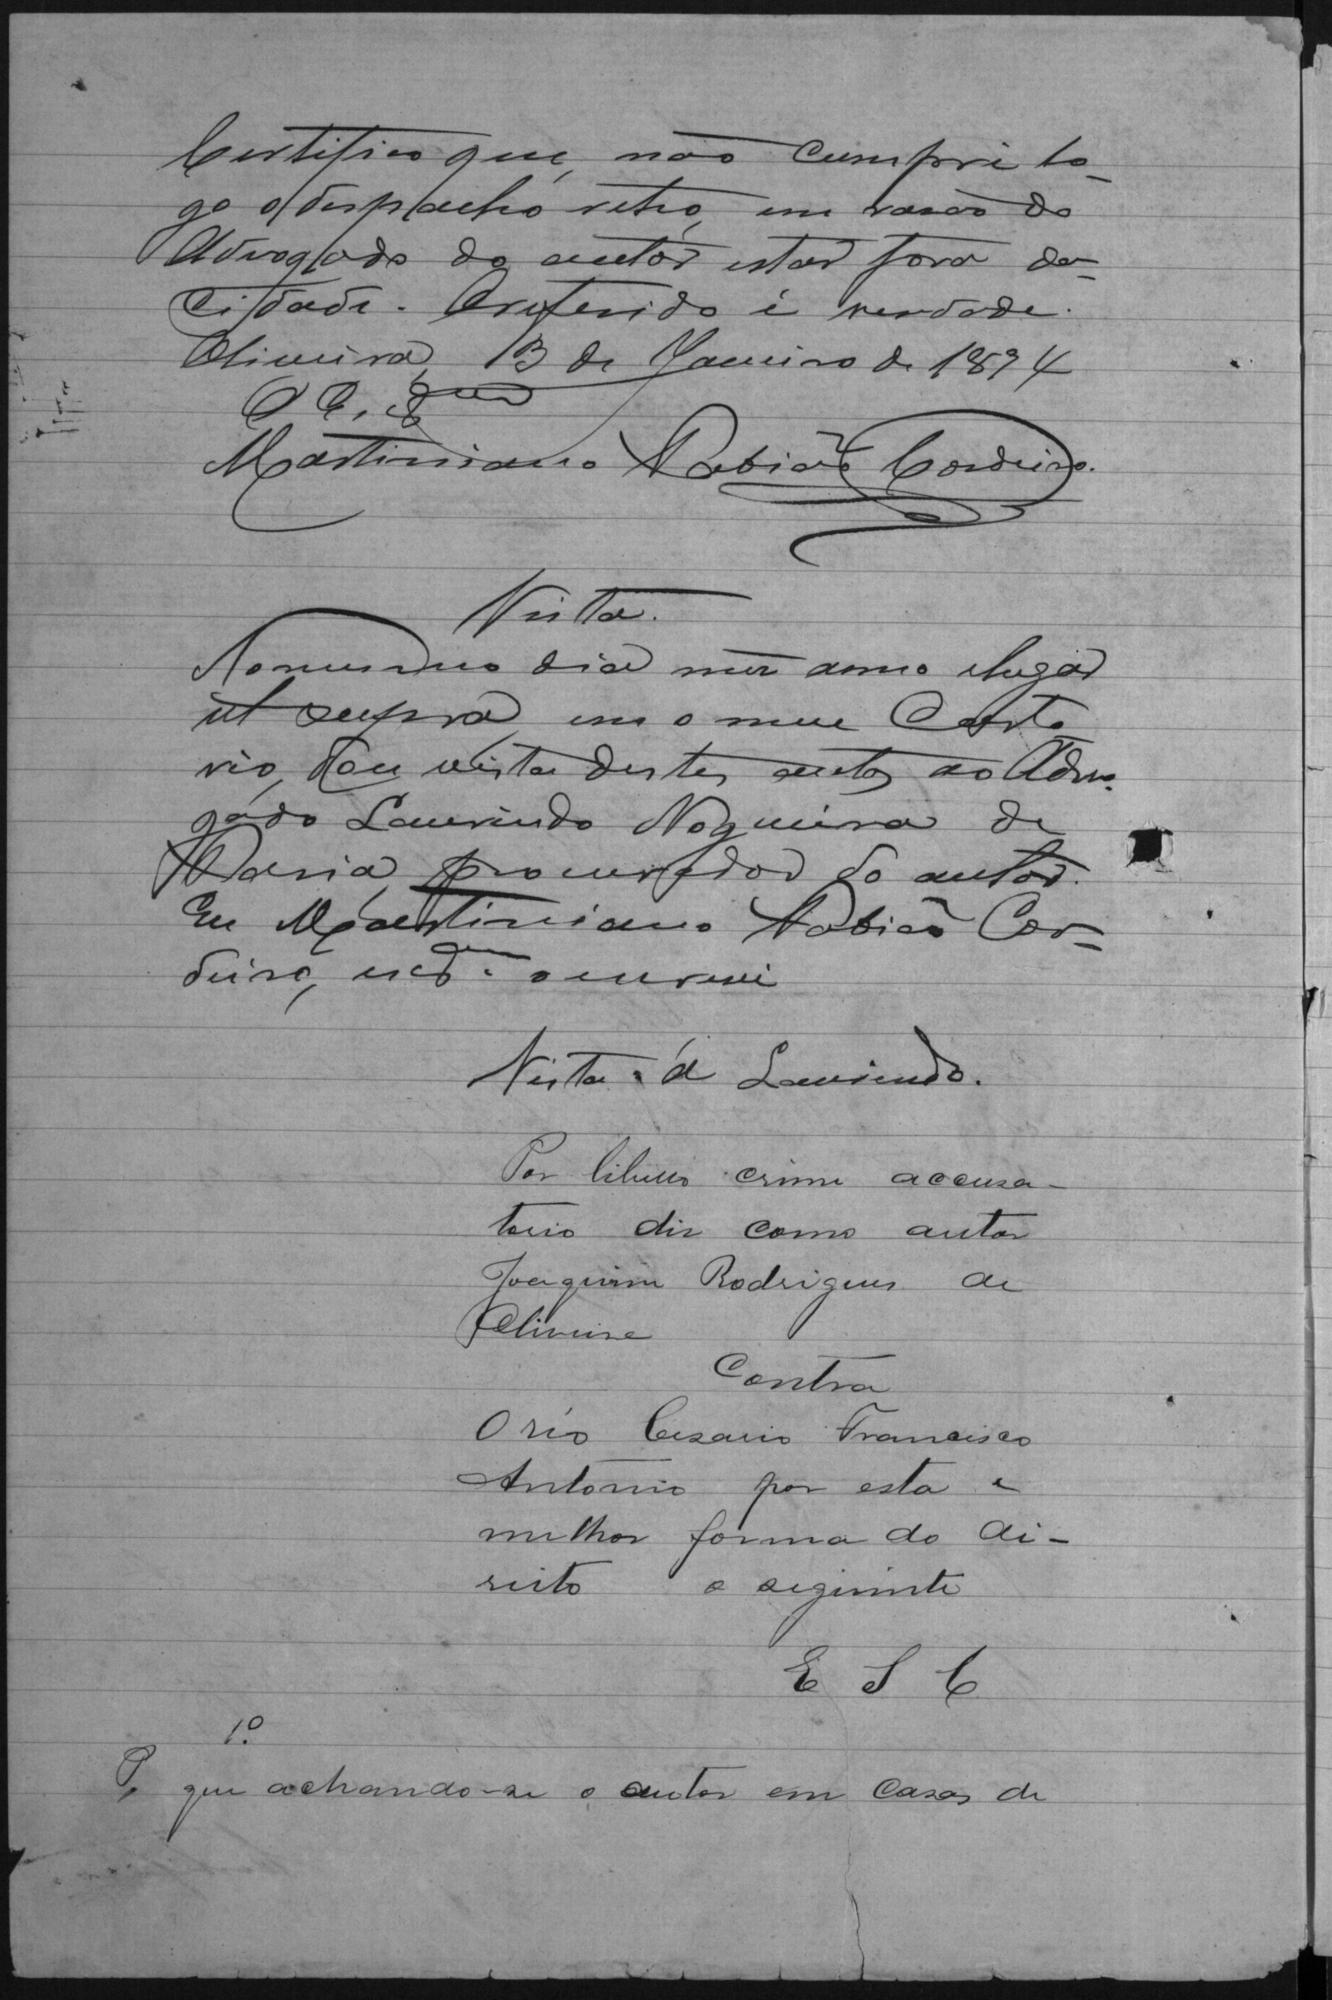 Certifico que, não cumpri lo-
go o despacho retro, em rasão do
Advogado do autôr estar fora da
Cidade. O referido é verdade.
Oliveira, 13 de Janeiro de 1894
O E.
Martiniano Rabião Cordeiro.
Vista.
No mesmo dia mez anno e lugar
ut supra, em o meu Carto
rio, dou vista destes autos ao Advo.
gado Laurindo Nogueira de
Faria, procurador do autor.
Eu Martiniano Rabião Cor-
deiro, escrº. o escrevi
Vista á Laurindo.
Por libello crime accusa-
torio diz como autor
Joaquim Rodrigues de
Oliveira
Contra
O réo Cesario Francisco
Antonio por esta e
melhor forma do di-
reito o seguinte
E S C
1.º
P. que achando-se o autor em casas de